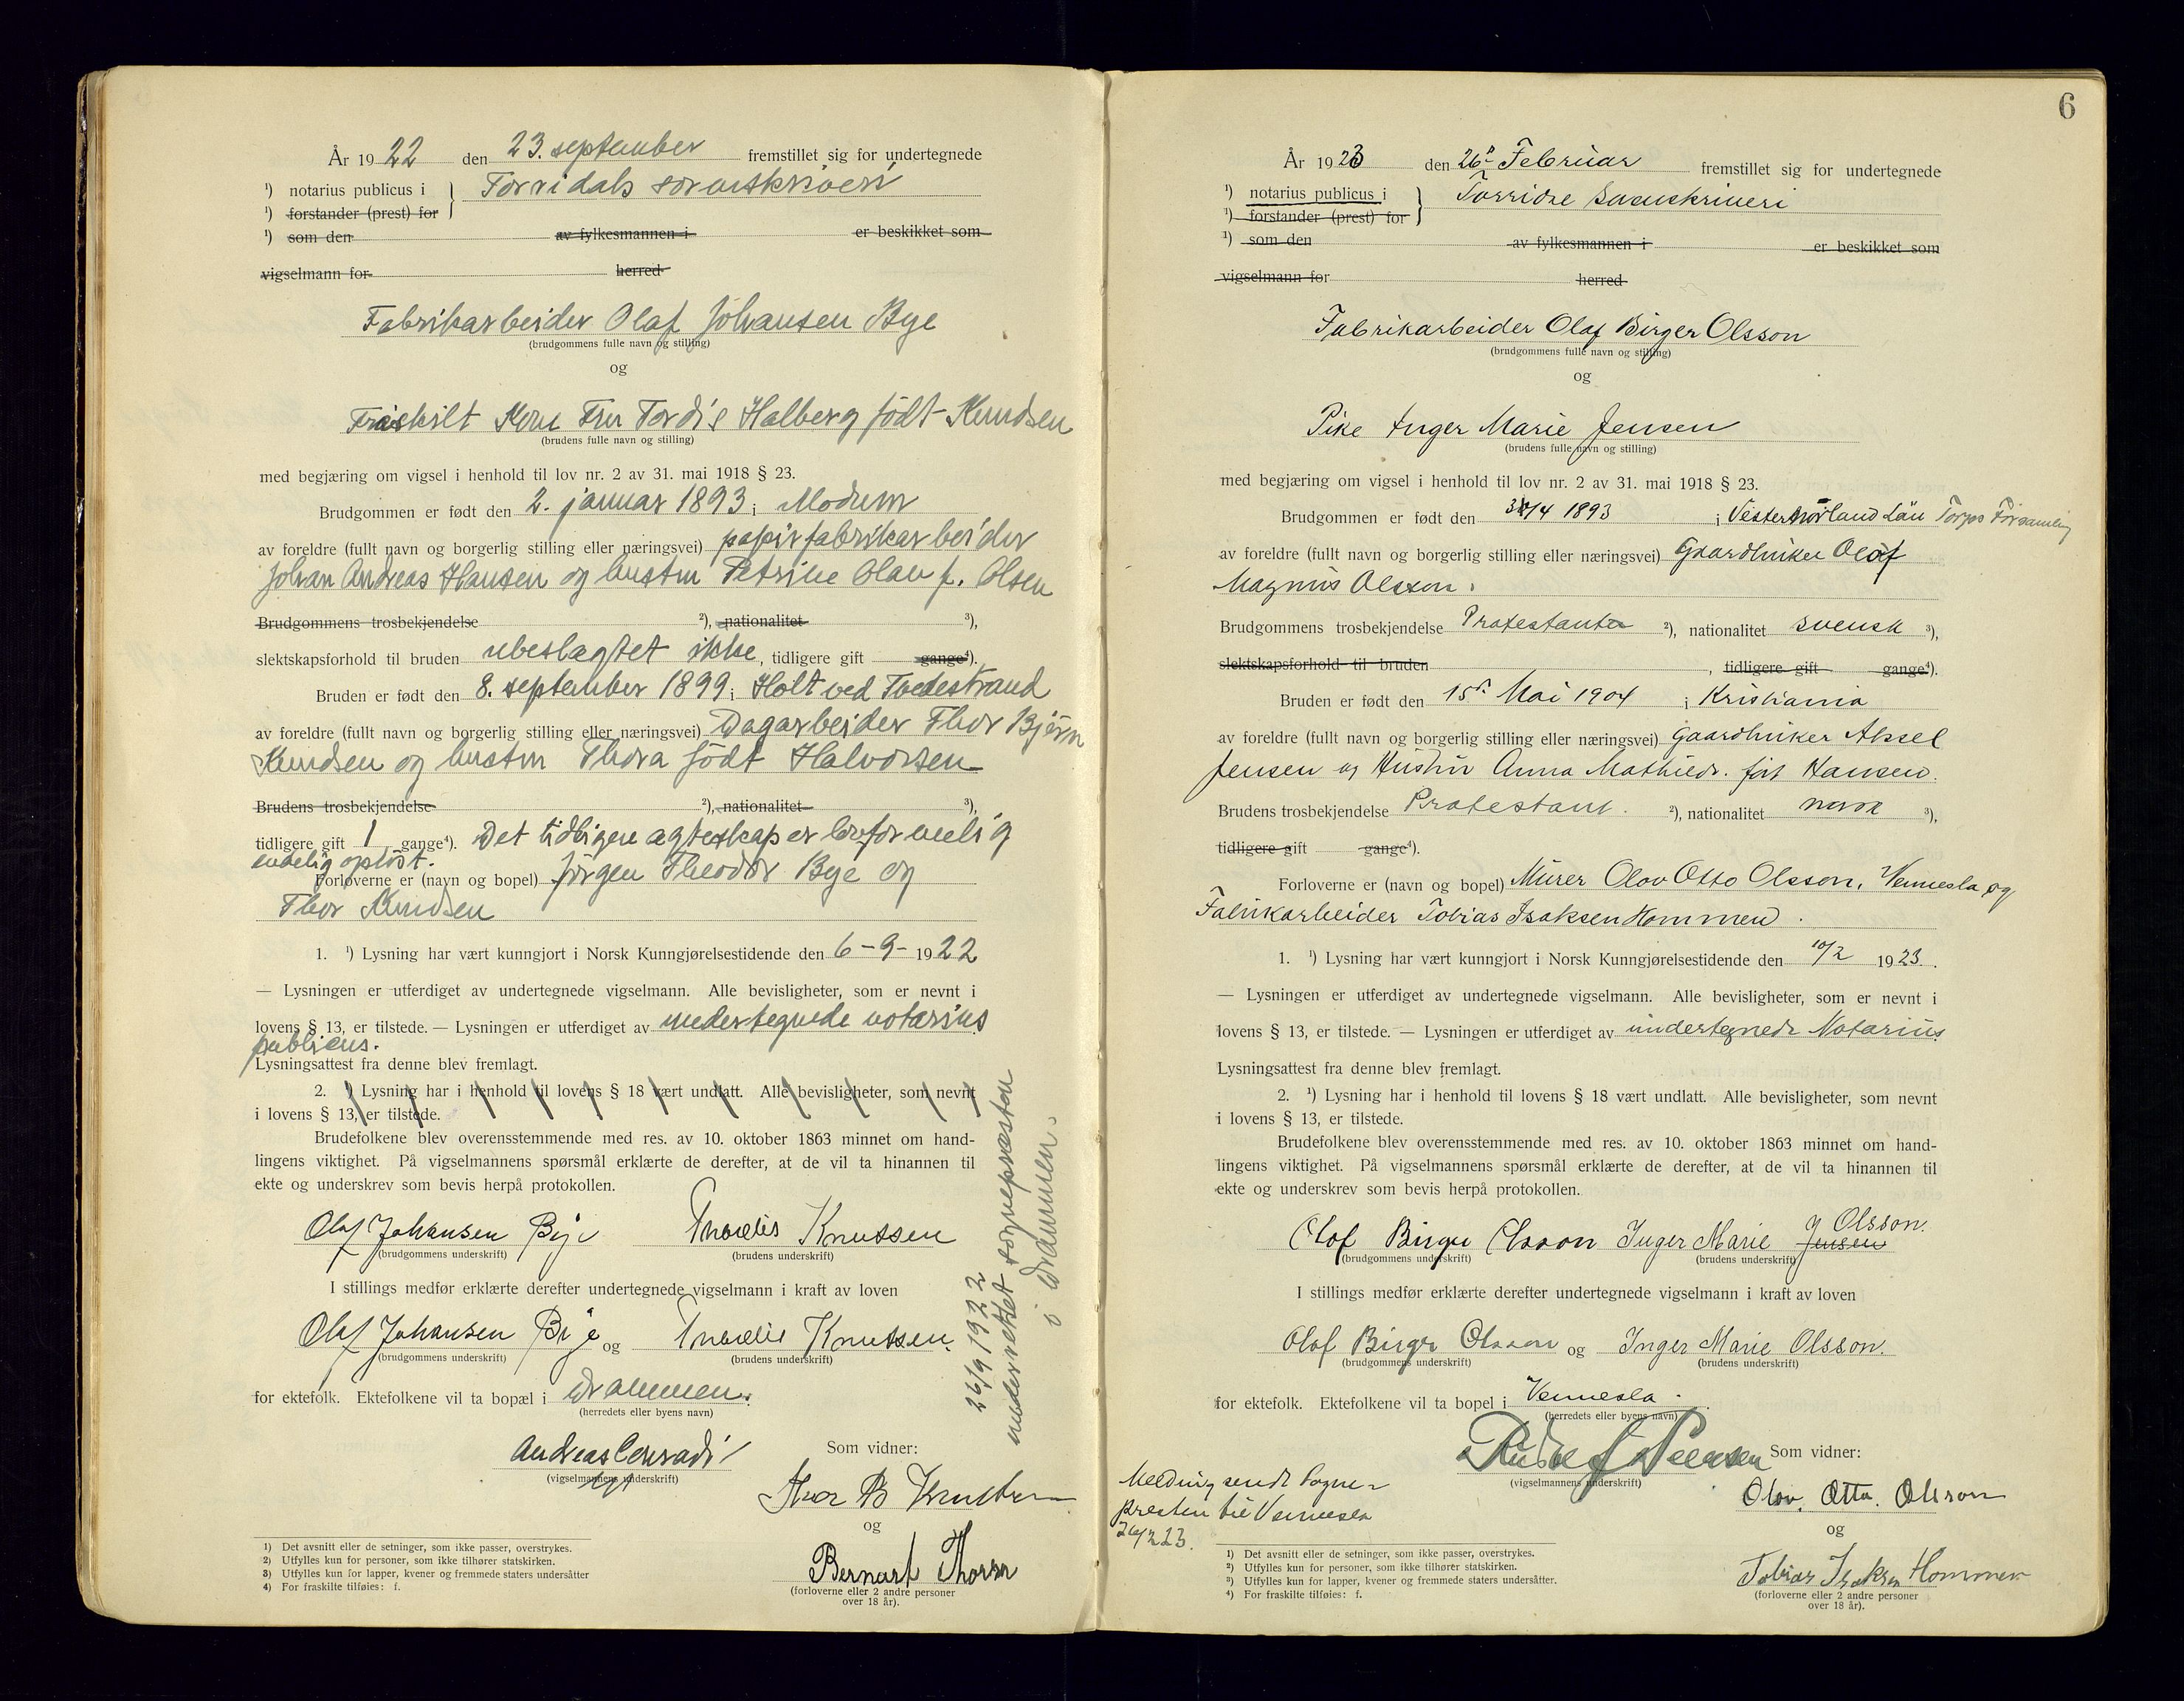 År 1922 den 23. september fremstillet sig for undertegnede
¹) notarius publicus i } Torridals sorenskriveri
¹) forstander (prest) for
¹) som den av fylkesmannen i er beskikket som
vigselmann for herred
Fabrikarbeider Olaf Johansen Bye
(brudgommens fulle navn og stilling)
og
Fraskilt Kone Fru Tordis Halberg födt Knudsen
(brudens fulle navn og stilling)
med begjæring om vigsel i henhold til lov nr. 2 av 31. mai 1918 § 23.
Brudgommen er født den 2. januar 1893 i Modum
av foreldre (fullt navn og borgerlig stilling eller næringsvei) papirfabrikarbeider
Johan Andreas Hansen og hustru Petrine Olau f. Olsen
Brudgommens trosbekjendelse ²), nationalitet ³),
slektskapsforhold til bruden ubeslagtet ikke, tidligere gift gange⁴).
Bruden er født den 8. september 1899 i Holt ved Tvedestrand
av foreldre (fullt navn og borgerlig stilling eller næringsvei) Dagarbeider Thor Bjørn
Knudsen og hustru Thora födt Halvorsen
Brudens trosbekjendelse ²), nationalitet ³),
tidligere gift 1 gange⁴). Det tidligere ægteskap er lovformelig
endelig opløst.
Forloverne er (navn og bopel) Jörgen Theodor Bye og
Thor Knudsen
1. ¹) Lysning har vært kunngjort i Norsk Kunngjørelsestidende den 6-9- 1922
— Lysningen er utferdiget av undertegnede vigselmann. Alle bevisligheter, som er nevnt i
lovens § 13, er tilstede. — Lysningen er utferdiget av undertegnede notarius
publicus.
Lysningsattest fra denne blev fremlagt.
2. ¹) Lysning har i henhold til lovens § 18 vært undlatt. Alle bevisligheter, som nevnt
i lovens § 13, er tilstede.
Brudefolkene blev overensstemmende med res. av 10. oktober 1863 minnet om hand-
lingens viktighet. På vigselmannens spørsmål erklærte de derefter, at de vil ta hinannen til
ekte og underskrev som bevis herpå protokollen.
Olaf Johansen Bye Knutsen
(brudgommens underskrift) (brudens underskrift)
I stillings medfør erklærte derefter undertegnede vigselmann i kraft av loven
Olaf Johansen Bye og Knutsen.
(brudgommens underskrift) (brudens underskrift)
for ektefolk. Ektefolkene vil ta bopæl i Drammen.
(herredets eller byens navn)
26/9 1922
underrettet sognepræsten
i Drammen.
Andreas Conradi
(vigselmannens underskrift)
Som vidner:
Thor B Knudsen
og
Bernart Thorsn
(forloverne eller 2 andre personer
over 18 år).
1) Det avsnitt eller de setninger, som ikke passer, overstrykes.
2) Utfylles kun for personer, som ikke tilhører statskirken.
3) Utfylles kun for lapper, kvener og fremmede staters undersåtter
4) For fraskilte tilføies: f.
6
År 1923 den 26de Februar fremstillet sig for undertegnede
¹) notarius publicus i } Torridal Sorenskriveri
¹) forstander (prest) for
¹) som den av fylkesmannen i er beskikket som
vigselmann for herred
Fabrikarbeider Olaf Birger Olsson
(brudgommens fulle navn og stilling)
og
Pike Inger Marie Jensen
(brudens fulle navn og stilling)
med begjæring om vigsel i henhold til lov nr. 2 av 31. mai 1918 § 23.
Brudgommen er født den /4 1893 i Vesternorland Län Torps Församling
av foreldre (fullt navn og borgerlig stilling eller næringsvei) Gaardbruker Olof
Magnus Olsson.
Brudgommens trosbekjendelse Protestant ²), nationalitet svensk ³),
slektskapsforhold til bruden , tidligere gift gange⁴).
Bruden er født den 15de Mai 1904 i Kristiania
av foreldre (fullt navn og borgerlig stilling eller næringsvei) Gaardbruker Aksel
Jensen og Hustru Anna Mathilde. født Hansen.
Brudens trosbekjendelse Protestant. ²), nationalitet norsk ³),
tidligere gift gange⁴).
Forloverne er (navn og bopel) Murer Olov Otto Olsson, Vennesla og
Fabrikarbeider Tobias Isaksen Hommen.
1. ¹) Lysning har vært kunngjort i Norsk Kunngjørelsestidende den 10/2 1923.
— Lysningen er utferdiget av undertegnede vigselmann. Alle bevisligheter, som er nevnt i
lovens § 13, er tilstede. — Lysningen er utferdiget av undertegnede Notarius
Lysningsattest fra denne blev fremlagt.
2. ¹) Lysning har i henhold til lovens § 18 vært undlatt. Alle bevisligheter, som nevnt
i lovens § 13, er tilstede.
Brudefolkene blev overensstemmende med res. av 10. oktober 1863 minnet om hand-
lingens viktighet. På vigselmannens spørsmål erklærte de derefter, at de vil ta hinannen til
ekte og underskrev som bevis herpå protokollen.
Olof Birger Olsson Inger Marie Jensen Olsson.
(brudgommens underskrift) (brudens underskrift)
I stillings medfør erklærte derefter undertegnede vigselmann i kraft av loven
Olof Birger Olsson og Inger Marie Olsson.
(brudgommens underskrift) (brudens underskrift)
for ektefolk. Ektefolkene vil ta bopel i Vennesla.
(herredets eller byens navn)
(vigselmannens underskrift)
Melding sendt Sogne-
presten til Vennesla
26/2 23.
Som vidner:
Olov. Otto. Olsson
og
Tobias Isaksen Hommen
(forloverne eller 2 andre personer
over 18 år).
1) Det avsnitt eller de setninger, som ikke passer, overstrykes.
2) Utfylles kun for personer, som ikke tilhører statskirken.
3) Utfylles kun for lapper, kvener og fremmede staters undersåtter.
4) For fraskilte tilføies: f.